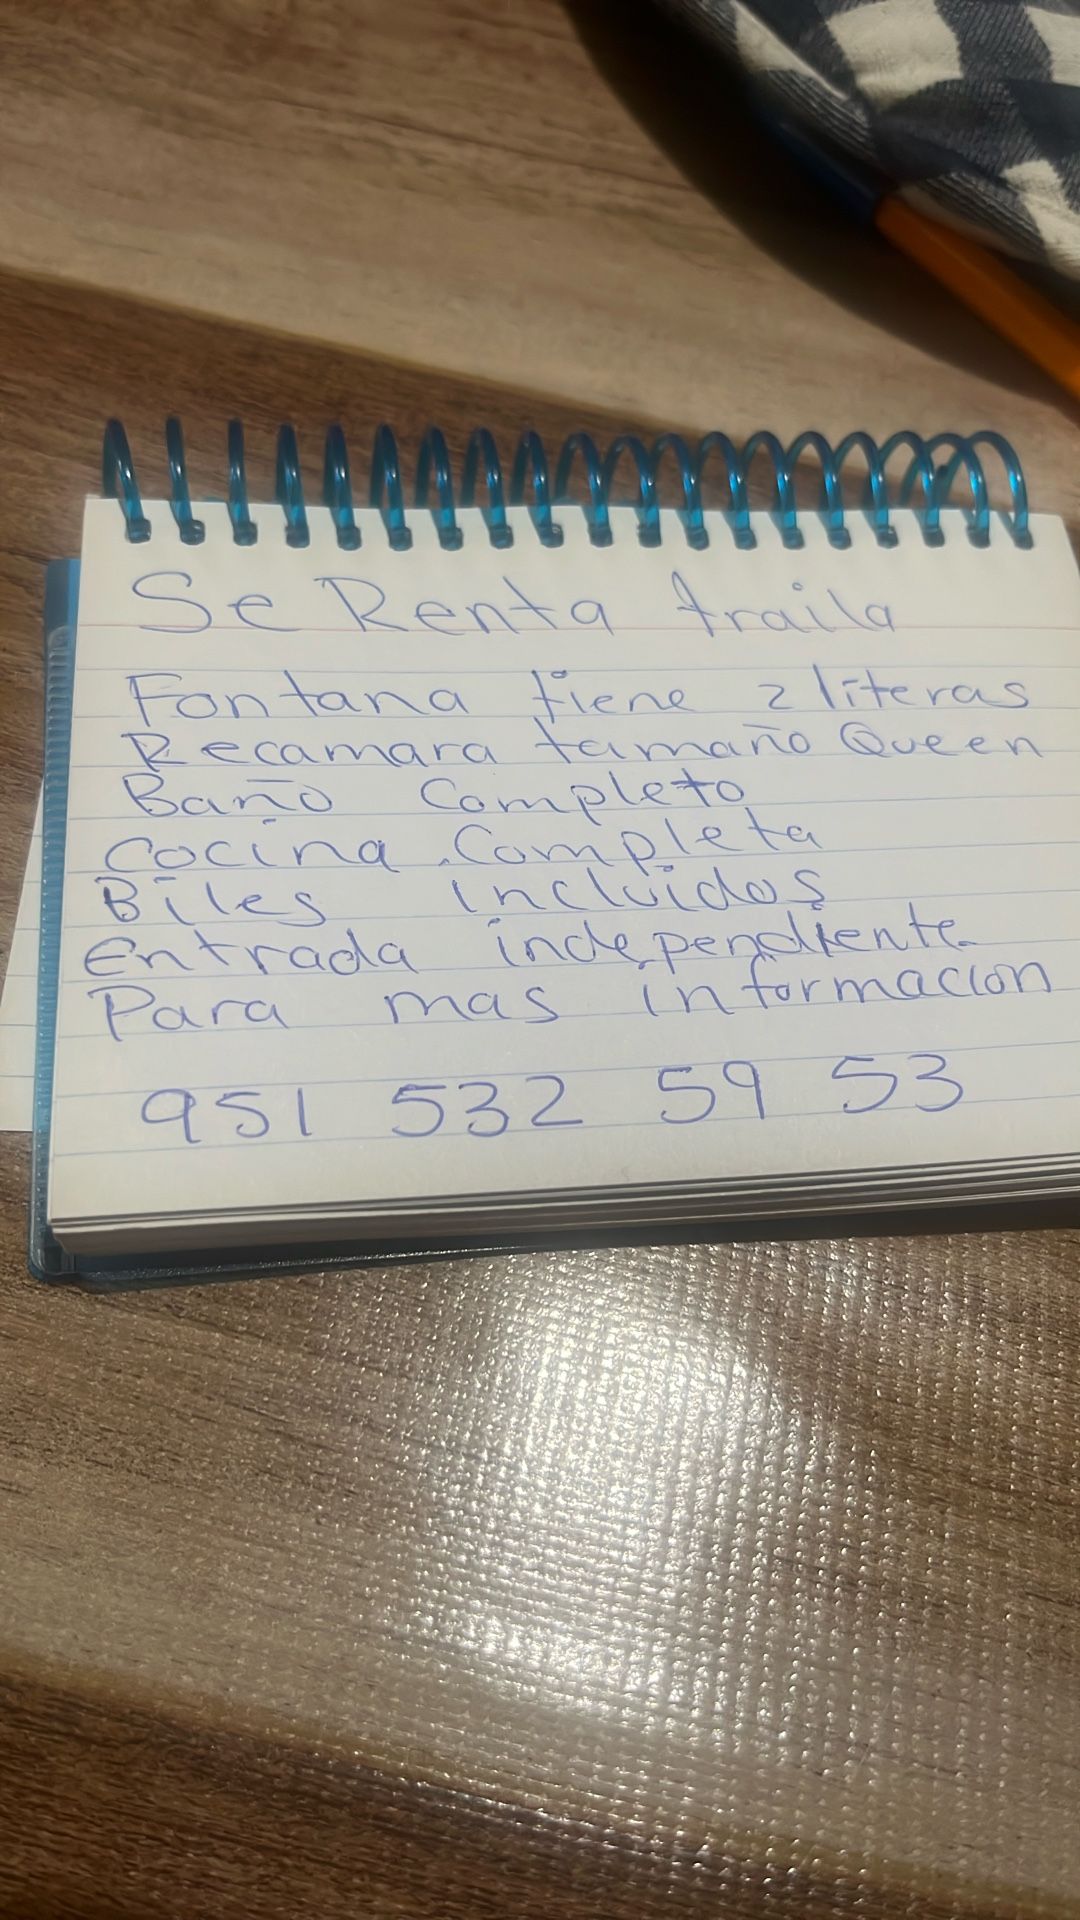 Se Renta traila
Fontana tiene 2 literas
Recamara tamaño Queen
Baño Completo
Cocina Completa
Biles incluidos
Entrada independiente
Para mas informacion
951 532 59 53